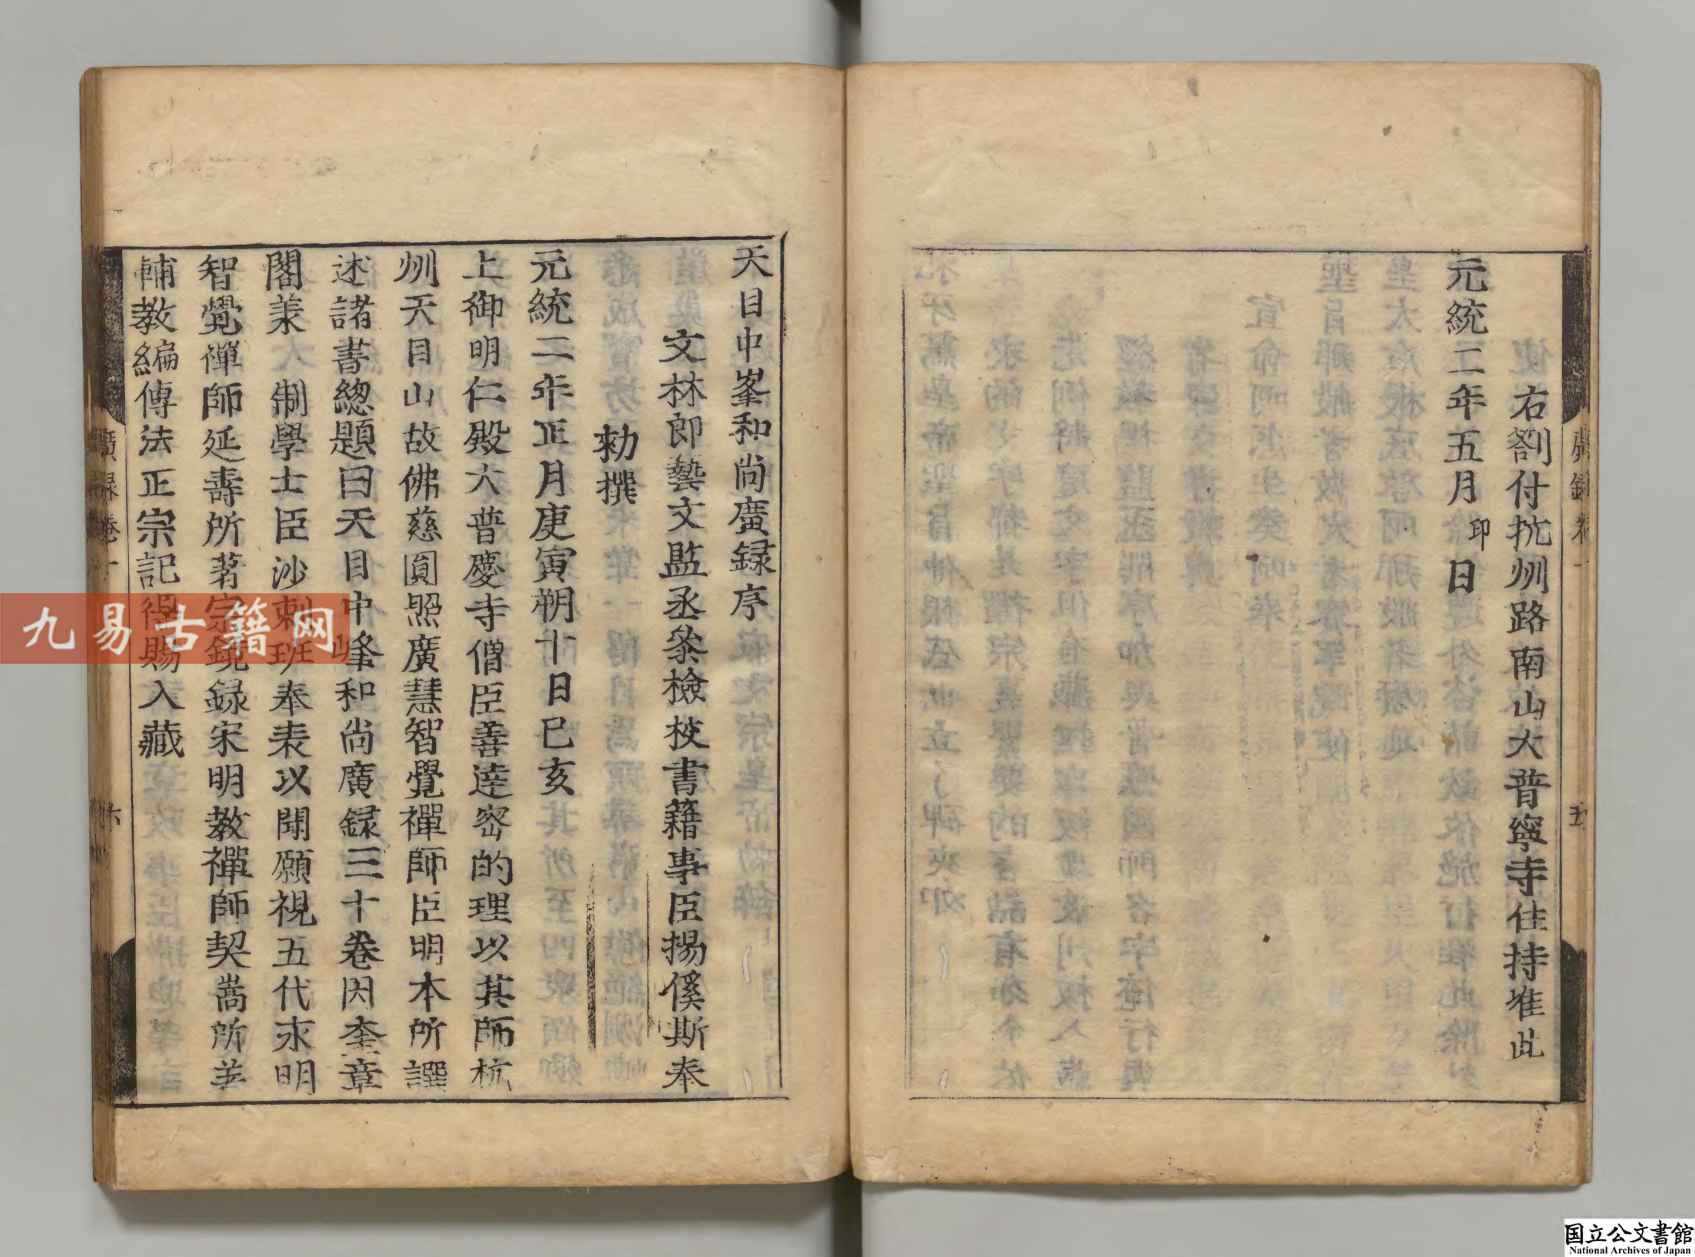 右劄付杭州路南山大普寧寺住持准此
元統二年五月印日
天目中峯和尚廣録序
文林郎藝文監丞叅檢挍書籍事臣揭傒斯奉
勑撰
元統二年正月庚寅朔十日己亥
上御明仁殿大普慶寺僧臣善達宻的理以其師杭
州天目山故佛慈圓照廣慧智覺禪師臣明本所譔
述諸書總題曰天目中峰和尚廣録三十卷因奎章
閣承制學士臣沙剌班奉表以聞願視五代永明
智覺禪師延壽所著宗鏡録宋明教禪師契嵩所著
輔教編傳法正宗記得賜入藏
廣録卷一
五
廣録卷一
六
九易古籍网
国立公文書館
National Archives of Japan